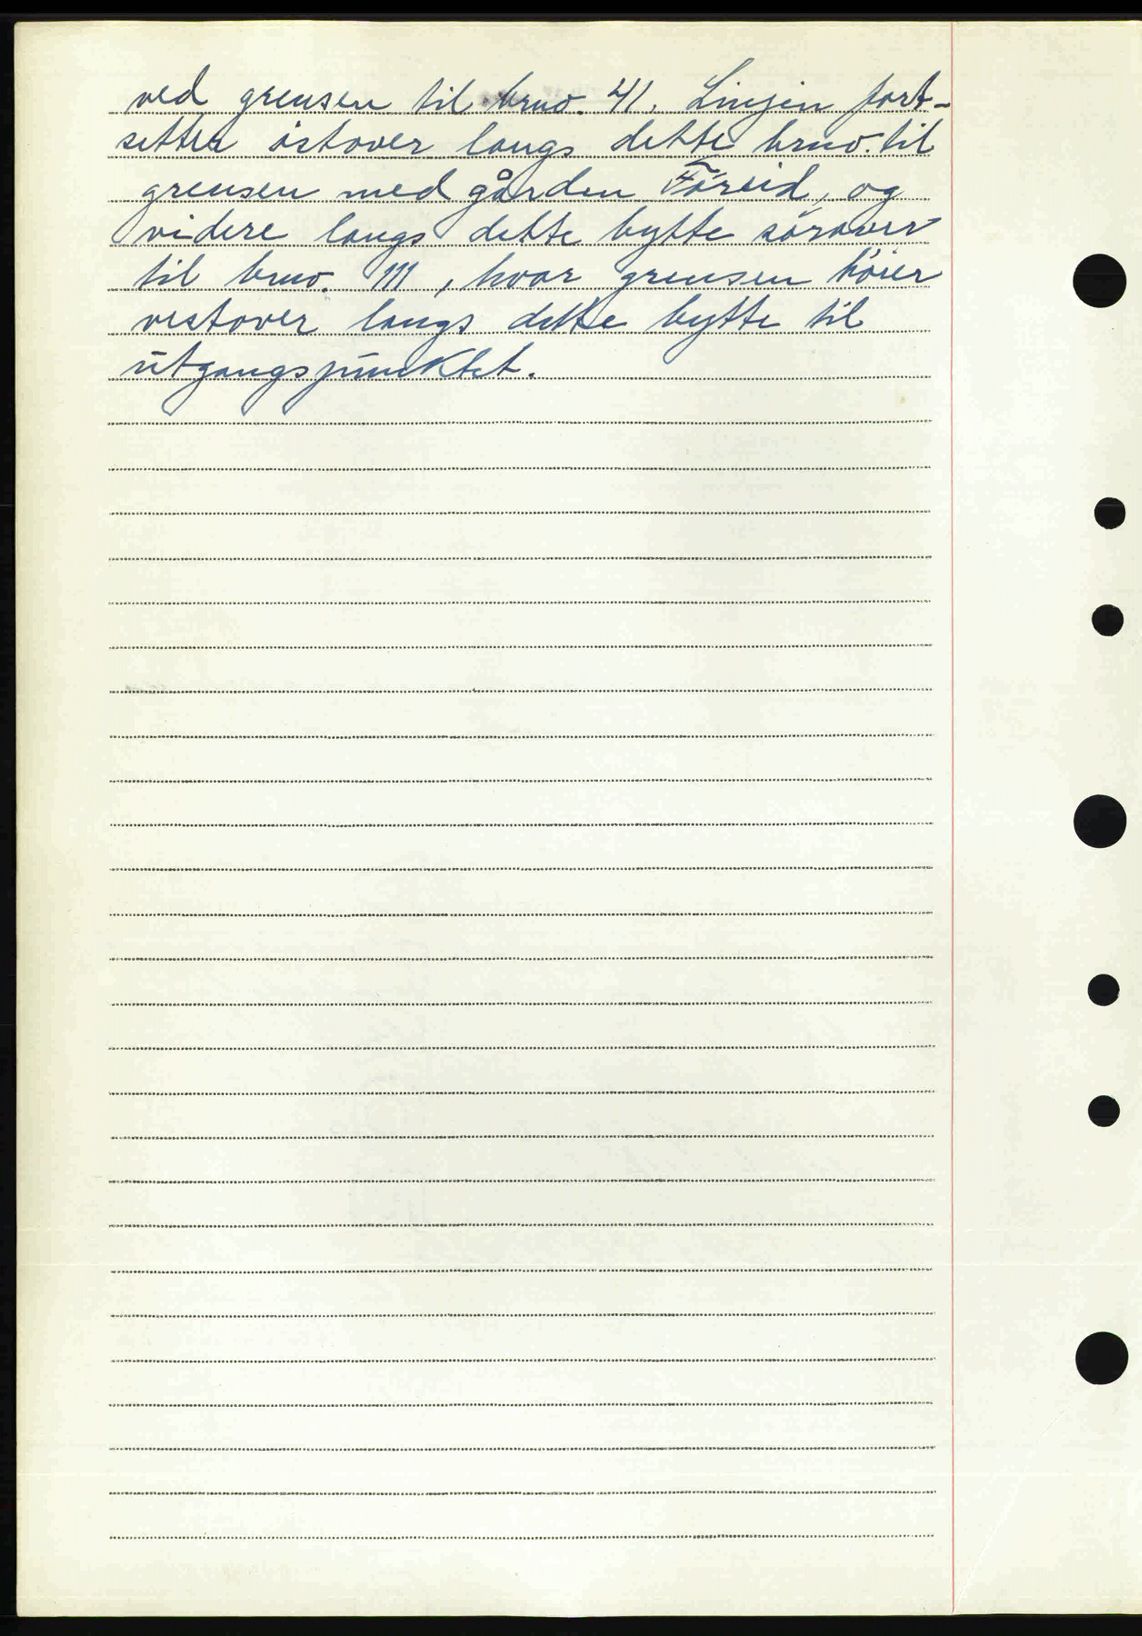 ved grensen til brno. 41. Linjen fort-
setter östover langs dette brno. til
grensen med gården Föreid, og
videre langs dette bytte sörover
til brno. 111, hvor grensen höier
vestover langs dette bytte til
utgangspunktet.